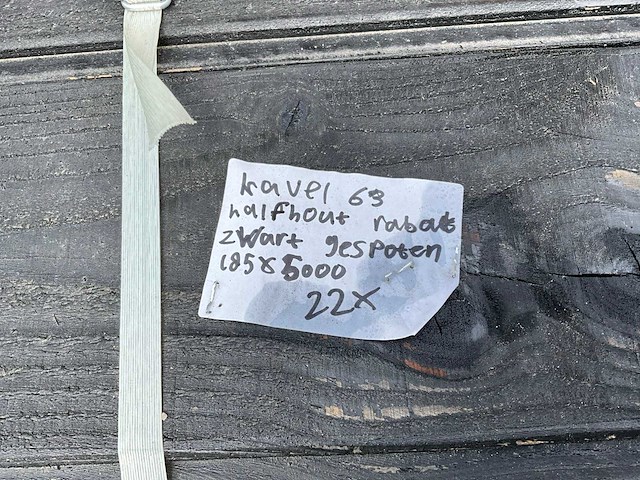 kavel 63
halfhout rabat
zwart gespoten
185x5000
22x